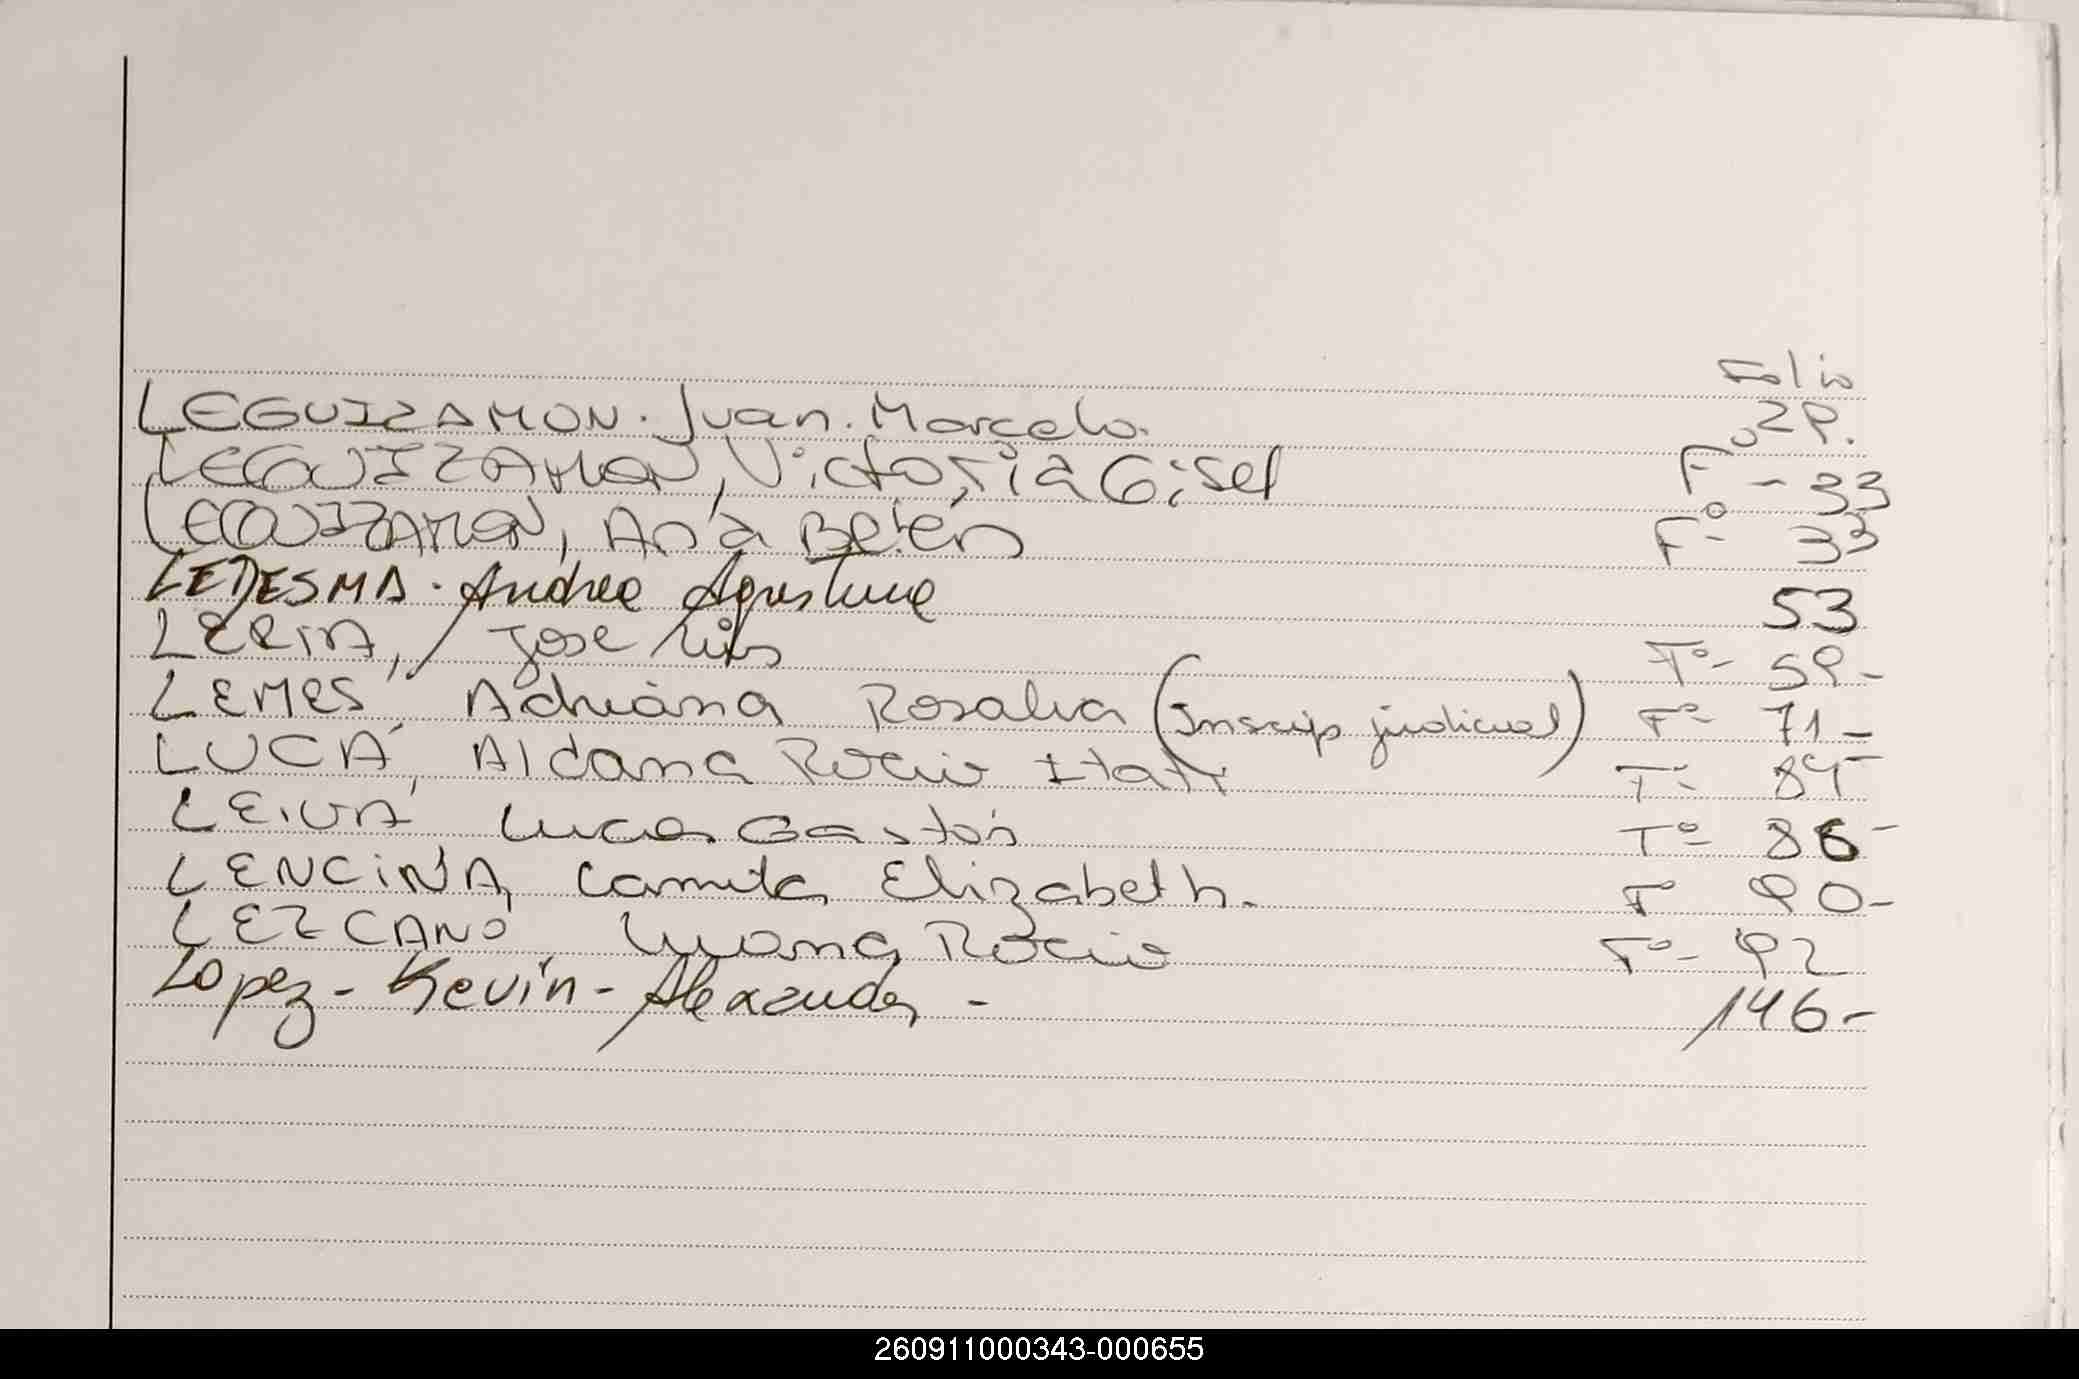 Folio
LEGUIZAMON. Juan. Marcelo. 29.
LEGUIZAMON, Victoria Gisel Fº - 33
LEGUIZAMON, Ana Belén Fº - 33
LEDESMA. Andrea Agustina 53
LERIA, José Luis Fº - 59 -
LEMES, Adriana Rosalia (Inscrip judicial) Fº - 71 -
LUCA, Aldana Rocio Itati Fº - 84 -
LEIVA Lucas Gastón Fº - 86 -
LENCINA, Camila Elizabeth. Fº 90 -
LEZCANO Luana Rocio Fº - 92
Lopez - Kevin - Alexander - 146 -
260911000343-000655